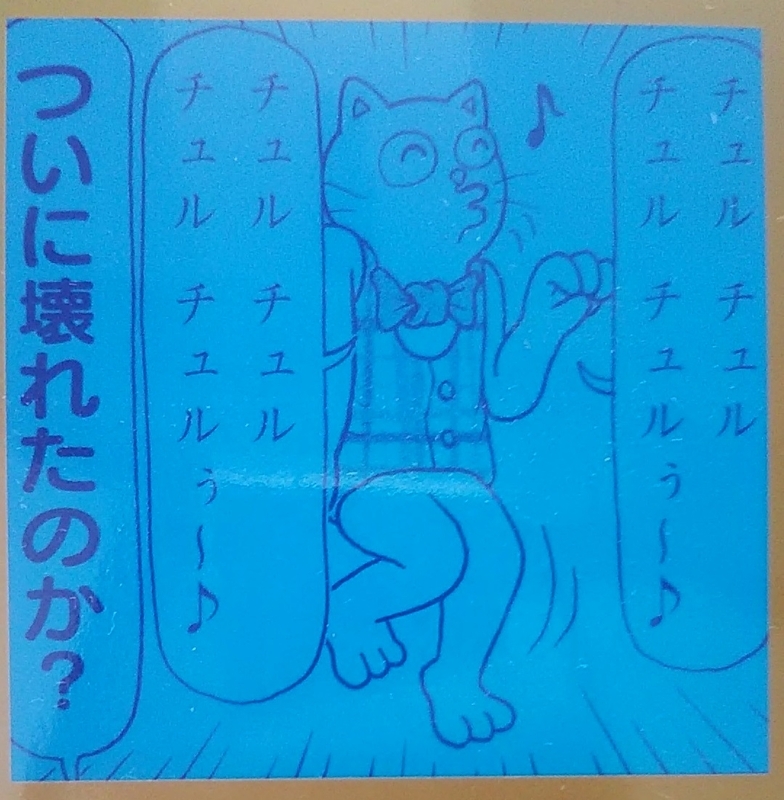 チュル チュル
チュル チュルぅ〜♪
♪
チュル チュル
チュル チュルぅ〜♪
ついに壊れたのか？